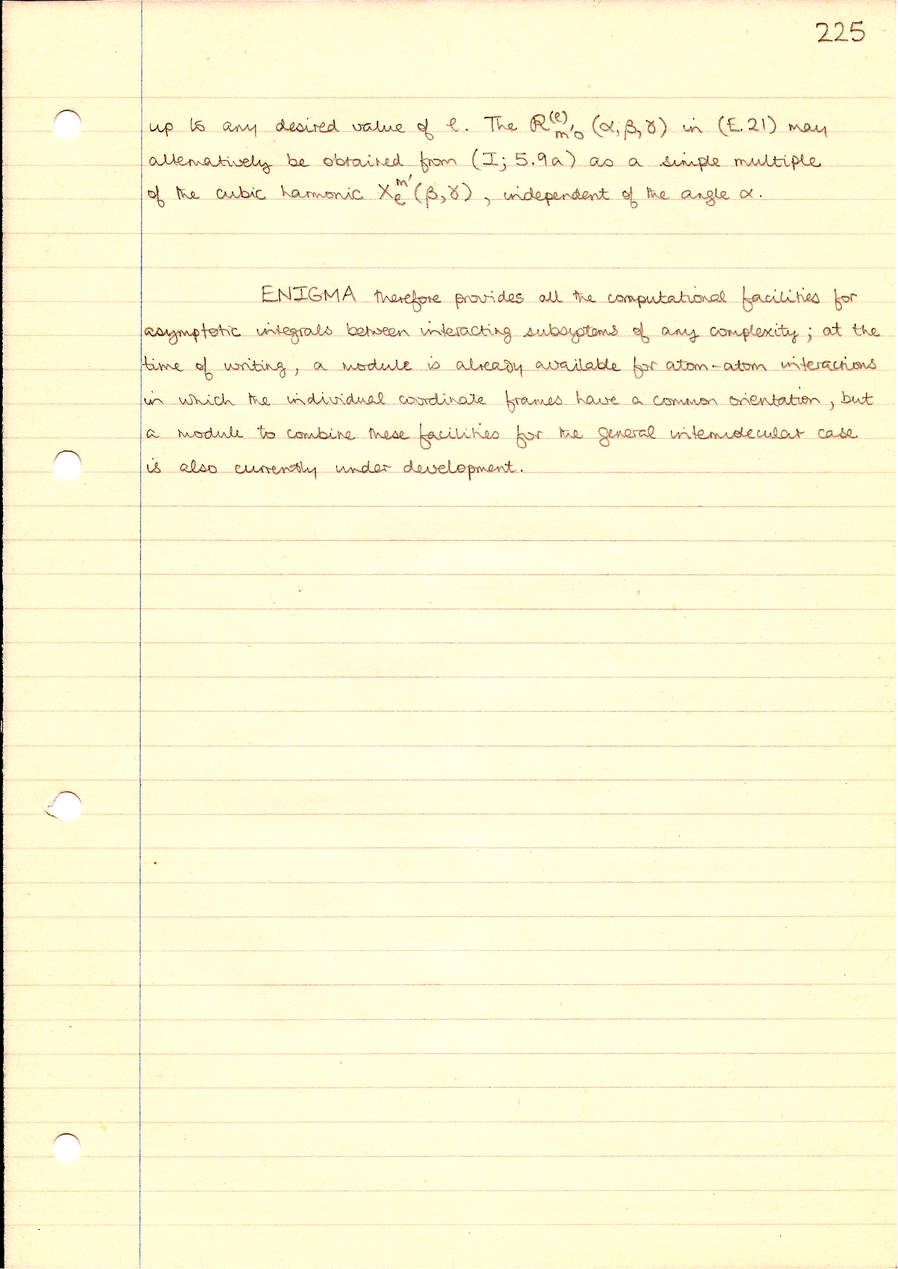 225
up to any desired value of ℓ. The ℛ^(ℓ)_m'0 (α,β,γ) in (E.21) may
alternatively be obtained from (I; 5.9a) as a simple multiple
of the cubic harmonic X_ℓ^m' (β,γ), independent of the angle α.
ENIGMA therefore provides all the computational facilities for
asymptotic integrals between interacting subsystems of any complexity; at the
time of writing, a module is already available for atom-atom interactions
in which the individual coordinate frames have a common orientation, but
a module to combine these facilities for the general intermolecular case
is also currently under development.